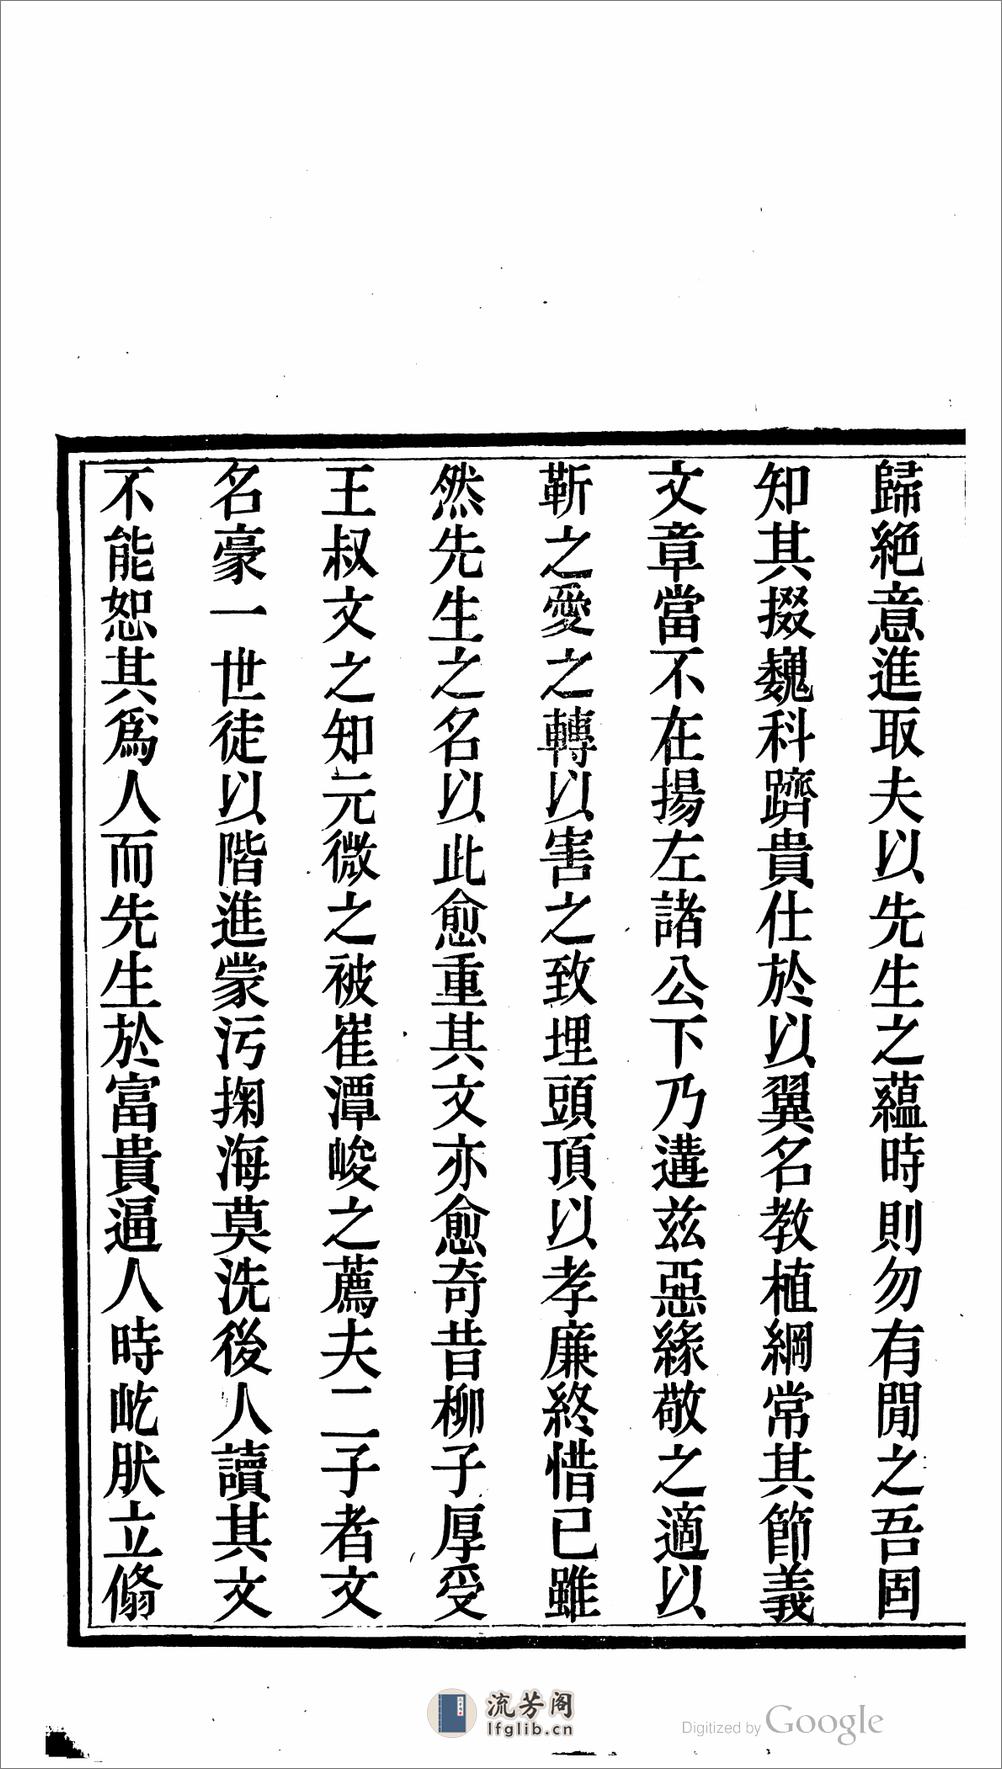 歸絕意進取夫以先生之蘊時則勿有閒之吾固
知其掇巍科躋貴仕於以翼名教植綱常其節義
文章當不在揚左諸公下乃遘兹惡緣敬之適以
靳之愛之轉以害之致埋頭頂以孝廉終惜已雖
然先生之名以此愈重其文亦愈奇昔柳子厚受
王叔文之知元微之被崔潭峻之薦夫二子者文
名豪一世徒以階進蒙污掬海莫洗後人讀其文
不能恕其爲人而先生於富貴逼人時屹肰立脩
流芳阁
lfglib.cn
Digitized by Google